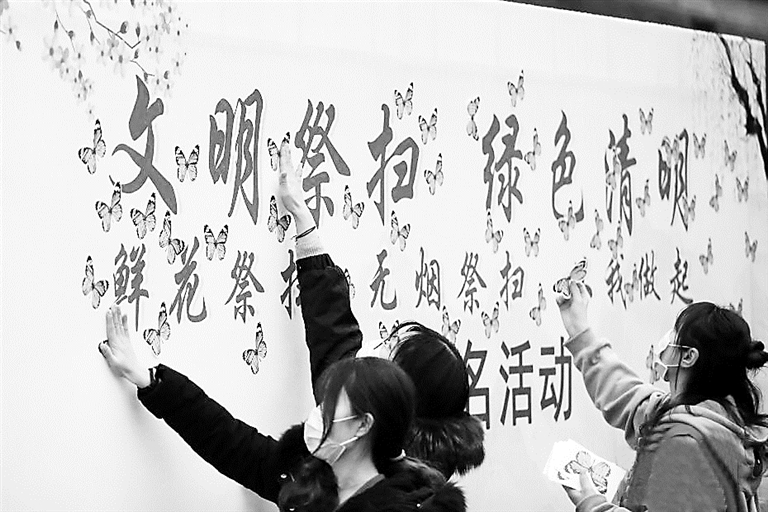 文明祭扫 绿色清明
鲜花祭扫 无烟祭扫 我做起
名活动